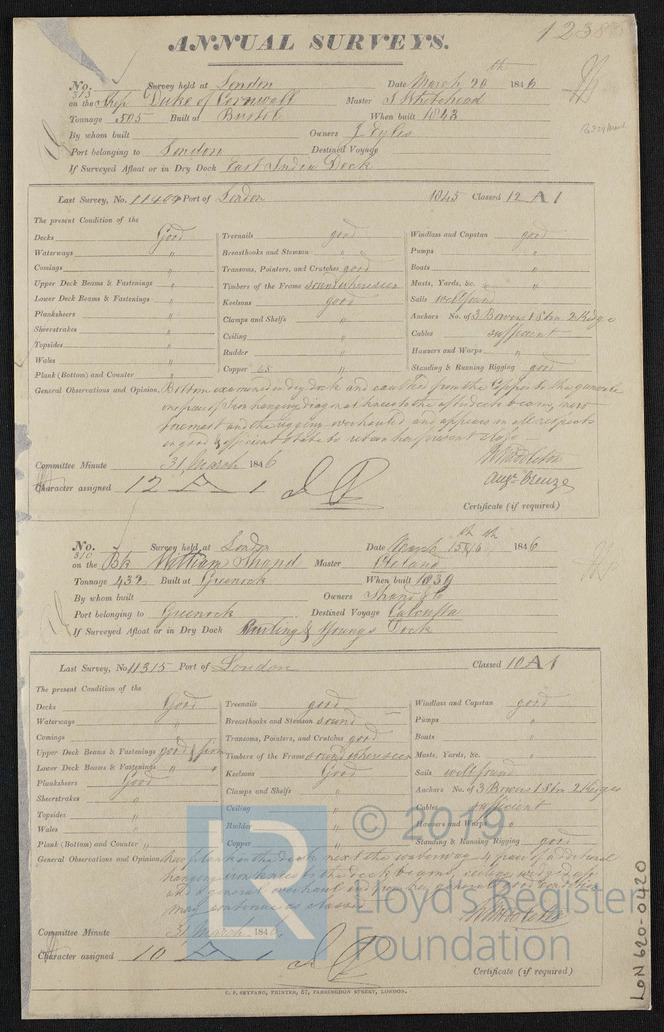 12388
ANNUAL SURVEYS.
No. 313 Survey held at London Date March 20th 1846
on the Ship Duke of Cornwall Master J Whitehead
Tonnage 505 Built at Bristol When built 1843
By whom built Owners J. Eyles
Port belonging to London Destined Voyage
If Surveyed Afloat or in Dry Dock East India Dock
Last Survey, No. 11409 Port of London 1845 Classed 12 A 1
The present Condition of the
Decks Good Treenails good Windlass and Capstan good
Waterways " Breasthooks and Stemson " Pumps "
Comings " Transoms, Pointers, and Crutches good Boats "
Upper Deck Beams & Fastenings " Timbers of the Frame sound Masts, Yards, &c. "
Lower Deck Beams & Fastenings " Keelsons good Sails well found
Planksheers " Clamps and Shelfs " Anchors No. of 3 Bowers 1 Strm 2 Kedge
Sheerstrakes " Ceiling " Cables sufficient
Topsides " Rudder " Hawsers and Warps "
Wales "
Plank (Bottom) and Counter " Copper Standing & Running Rigging good
General Observations and Opinion, Bottom examined in dry dock and caulked from the Copper to the
one pair of Iron hanging diagonal knees to the after deck beams, new
foremast and the rigging overhauled and appears in all respects
in good & efficient state to retain her present class
Committee Minute 31 March 1846 Middleton
Character assigned 12 A 1 Augn Creuze
Certificate (if required)
No. 310 Survey held at London Date March 15th 16th 1846
on the Bk William Shand Master Cleland
Tonnage 432 Built at Greenock When built 1839
By whom built Owners Shand & Co
Port belonging to Greenock Destined Voyage Calcutta
If Surveyed Afloat or in Dry Dock & Youngs Dock
Last Survey, No. 11315 Port of London Classed 10 A 1
The present Condition of the
Decks Good Treenails good Windlass and Capstan good
Waterways " Breasthooks and Stemson sound Pumps "
Comings " Transoms, Pointers, and Crutches good Boats "
Upper Deck Beams & Fastenings good & firm Timbers of the Frame sound Masts, Yards, &c. "
Lower Deck Beams & Fastenings " Keelsons Good Sails well found
Planksheers Good Clamps and Shelfs " Anchors No. of 3 Bowers 1 Strm 2 Kedges
Sheerstrakes " Ceiling " Cables sufficient
Topsides " Rudder " Hawsers and Warps "
Wales "
Plank (Bottom) and Counter " Copper Standing & Running Rigging good
General Observations and Opinion, plank on the deck next the waterway 4 pair of additional
hanging iron knees to the deck beams,
and a general overhaul and from her general good condition
may continue as classed
Committee Minute 31 March 1846 Middleton
Character assigned 10 A 1
Certificate (if required)
C. F. SEYFANG, PRINTER, 57, FARRINGDON STREET, LONDON.
LON 620-0420
© 2019
Lloyd's Register
Foundation